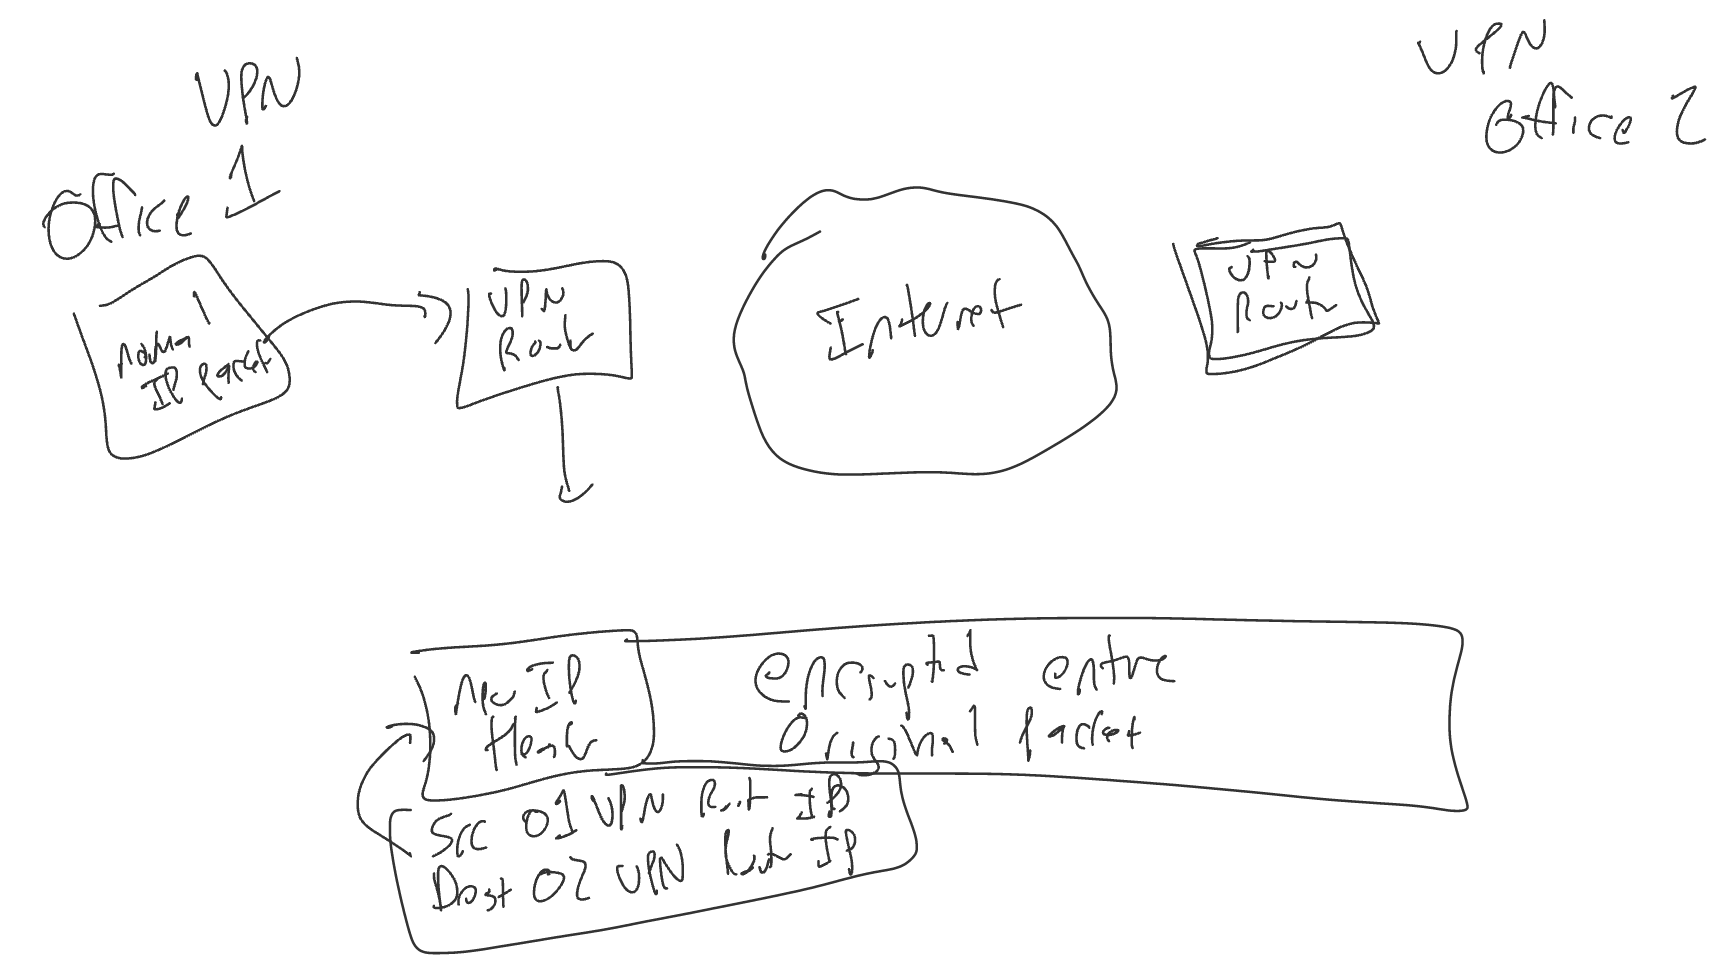 VPN
1
Office
VPN
Office 2
Normal
IP Packet
VPN
Router
Internet
VPN
Router
New IP
Header
encrypted entire
Original Packet
Src O1 VPN Rout IP
Dest O2 VPN Rout IP